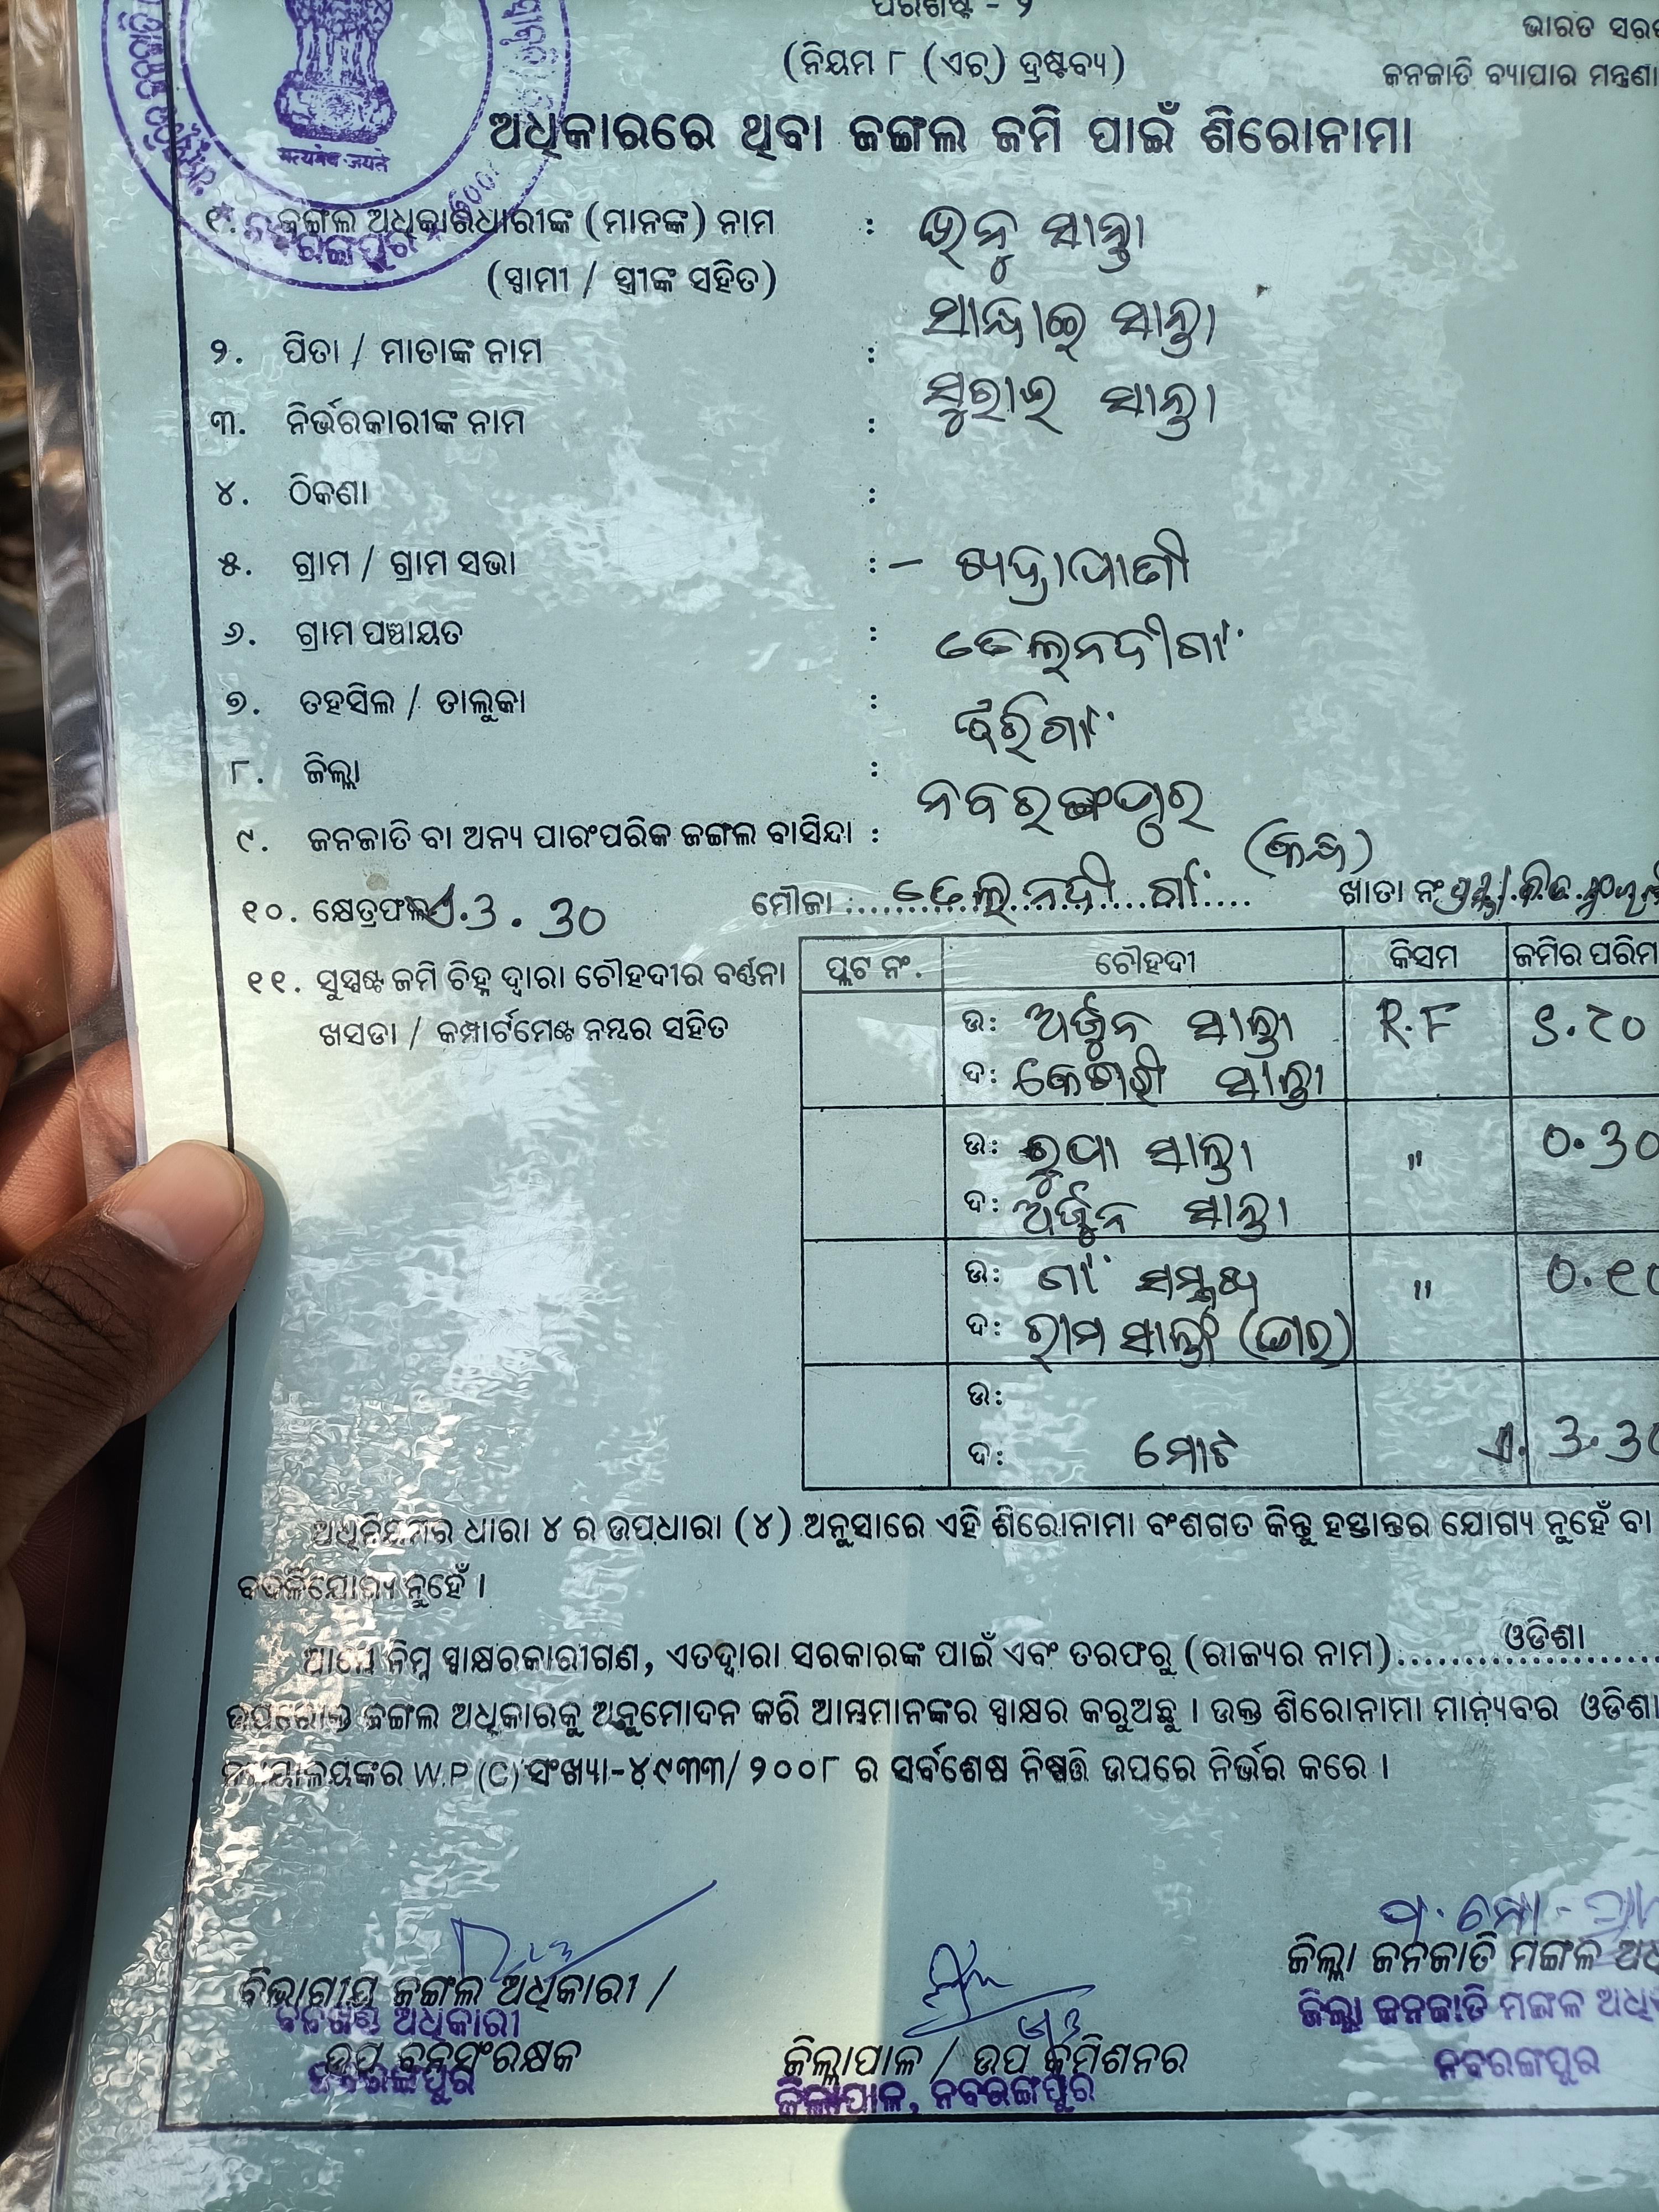 ପରିଶିଷ୍ଟ - ୨
(ନିୟମ ୮ (ଏଚ୍) ଦ୍ରଷ୍ଟବ୍ୟ)
ଭାରତ
ଜନଜାତି ବ୍ୟାପାର
ଅଧିକାରରେ ଥିବା ଜଙ୍ଗଲ ଜମି ପାଇଁ ଶିରୋନାମା
सत्यमेव जयते
୧. ଜଙ୍ଗଲ ଅଧିକାରଧାରୀଙ୍କ (ମାନଙ୍କ) ନାମ : ସାନ୍ତା
(ସ୍ୱାମୀ / ସ୍ତ୍ରୀଙ୍କ ସହିତ) ସାନ୍ତା
୨. ପିତା / ମାତାଙ୍କ ନାମ : ସାନ୍ତା
୩. ନିର୍ଭରକାରୀଙ୍କ ନାମ :
୪. ଠିକଣା :
୫. ଗ୍ରାମ / ଗ୍ରାମ ସଭା : –
୬. ଗ୍ରାମ ପଞ୍ଚାୟତ : ତେଲନଦୀଗାଁ
୭. ତହସିଲ / ତାଲୁକା : ଝରିଗାଁ
୮. ଜିଲ୍ଲା : ନବରଙ୍ଗପୁର
୯. ଜନଜାତି ବା ଅନ୍ୟ ପାରଂପରିକ ଜଙ୍ଗଲ ବାସିନ୍ଦା :
୧୦. କ୍ଷେତ୍ରଫଳ ଏ.3.30 ମୌଜା : ତେଲନଦୀଗାଁ ଖାତା ନଂ
୧୧. ସୁସ୍ପଷ୍ଟ ଜମି ଚିହ୍ନ ଦ୍ୱାରା ଚୌହଦୀର ବର୍ଣ୍ଣନା
ଖସଡା / କମ୍ପାର୍ଟମେଣ୍ଟ ନମ୍ବର ସହିତ
ପ୍ଲଟ ନଂ. ଚୌହଦୀ କିସମ ଜମିର
ଉ: ଅର୍ଜୁନ ସାନ୍ତା R.F
ଦ: ସାନ୍ତା
ଉ: ରୁପା ସାନ୍ତା " 0.30
ଦ: ଅର୍ଜୁନ ସାନ୍ତା
ଉ: ଗାଁ "
ଦ: ସାନ୍ତା
ଉ:
ଦ: ମୋଟ ଏ. 3.30
ଅଧିନିୟମର ଧାରା ୪ ର ଉପଧାରା (୪) ଅନୁସାରେ ଏହି ଶିରୋନାମା ବଂଶଗତ କିନ୍ତୁ ହସ୍ତାନ୍ତର ଯୋଗ୍ୟ ନୁହେଁ ବା
ବଦଳିଯୋଗ୍ୟ ନୁହେଁ ।
ଆମ୍ଭେ ନିମ୍ନ ସ୍ୱାକ୍ଷରକାରୀଗଣ, ଏତଦ୍ୱାରା ସରକାରଙ୍କ ପାଇଁ ଏବଂ ତରଫରୁ (ରାଜ୍ୟର ନାମ)...ଓଡିଶା...
ଉପରୋକ୍ତ ଜଙ୍ଗଲ ଅଧିକାରକୁ ଅନୁମୋଦନ କରି ଆମ୍ଭମାନଙ୍କର ସ୍ୱାକ୍ଷର କରୁଅଛୁ । ଉକ୍ତ ଶିରୋନାମା ମାନ୍ୟବର ଓଡିଶା
W.P (C) ସଂଖ୍ୟା-୪୯୩୩/ ୨୦୦୮ ର ସର୍ବଶେଷ ନିଷ୍ପତ୍ତି ଉପରେ ନିର୍ଭର କରେ ।
ବିଭାଗୀୟ ଜଙ୍ଗଲ ଅଧିକାରୀ /
ବନଖଣ୍ଡ ଅଧିକାରୀ
ଉପ ବନସଂରକ୍ଷକ
ନବରଙ୍ଗପୁର
ଜିଲ୍ଲାପାଳ / ଉପ କମିଶନର
ଜିଲ୍ଲାପାଳ, ନବରଙ୍ଗପୁର
ଜିଲ୍ଲା ଜନଜାତି ମଙ୍ଗଳ
ଜିଲ୍ଲା ଜନଜାତି ମଙ୍ଗଳ
ନବରଙ୍ଗପୁର